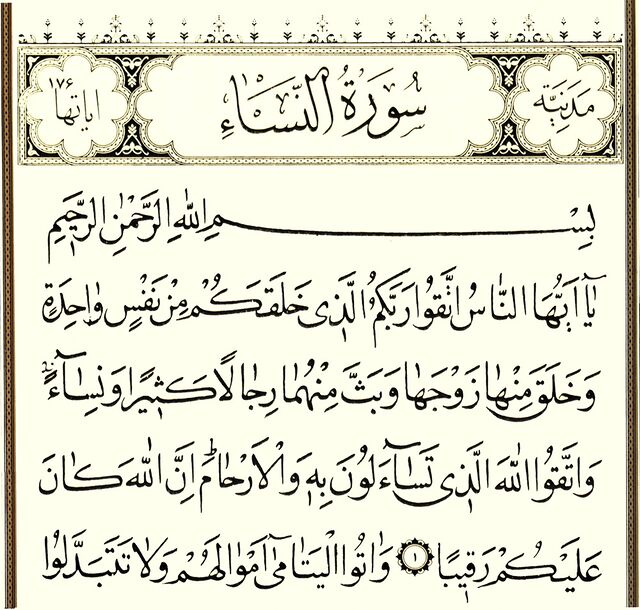 مَدَنِيَّة سُورَةُ النِّسَاءِ اٰيَاتُهَا ١٧٦
بِسْمِ اللّٰهِ الرَّحْمٰنِ الرَّحِيمِ
يَٓا اَيُّهَا النَّاسُ اتَّقُوا رَبَّكُمُ الَّذ۪ى خَلَقَكُمْ مِنْ نَفْسٍ وَاحِدَةٍ
وَخَلَقَ مِنْهَا زَوْجَهَا وَبَثَّ مِنْهُمَا رِجَالًا كَث۪يرًا وَنِسَٓاءً
وَاتَّقُوا اللّٰهَ الَّذ۪ى تَسَٓاءَلُونَ بِه۪ وَالْاَرْحَامَۜ اِنَّ اللّٰهَ كَانَ
عَلَيْكُمْ رَق۪يبًا ١ وَاٰتُوا الْيَتَامٰٓى اَمْوَالَهُمْ وَلَا تَتَبَدَّلُوا